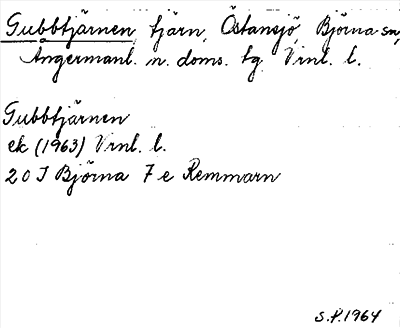 Gubbtjärnen, tjärn, Östansjö, Björna sn,
Ångermanl. n. doms. tg. Vrnl. l.
Gubbtjärnen
ek (1963) Vrnl. l.
20 J Björna 7 e Remmarn
S.P. 1964